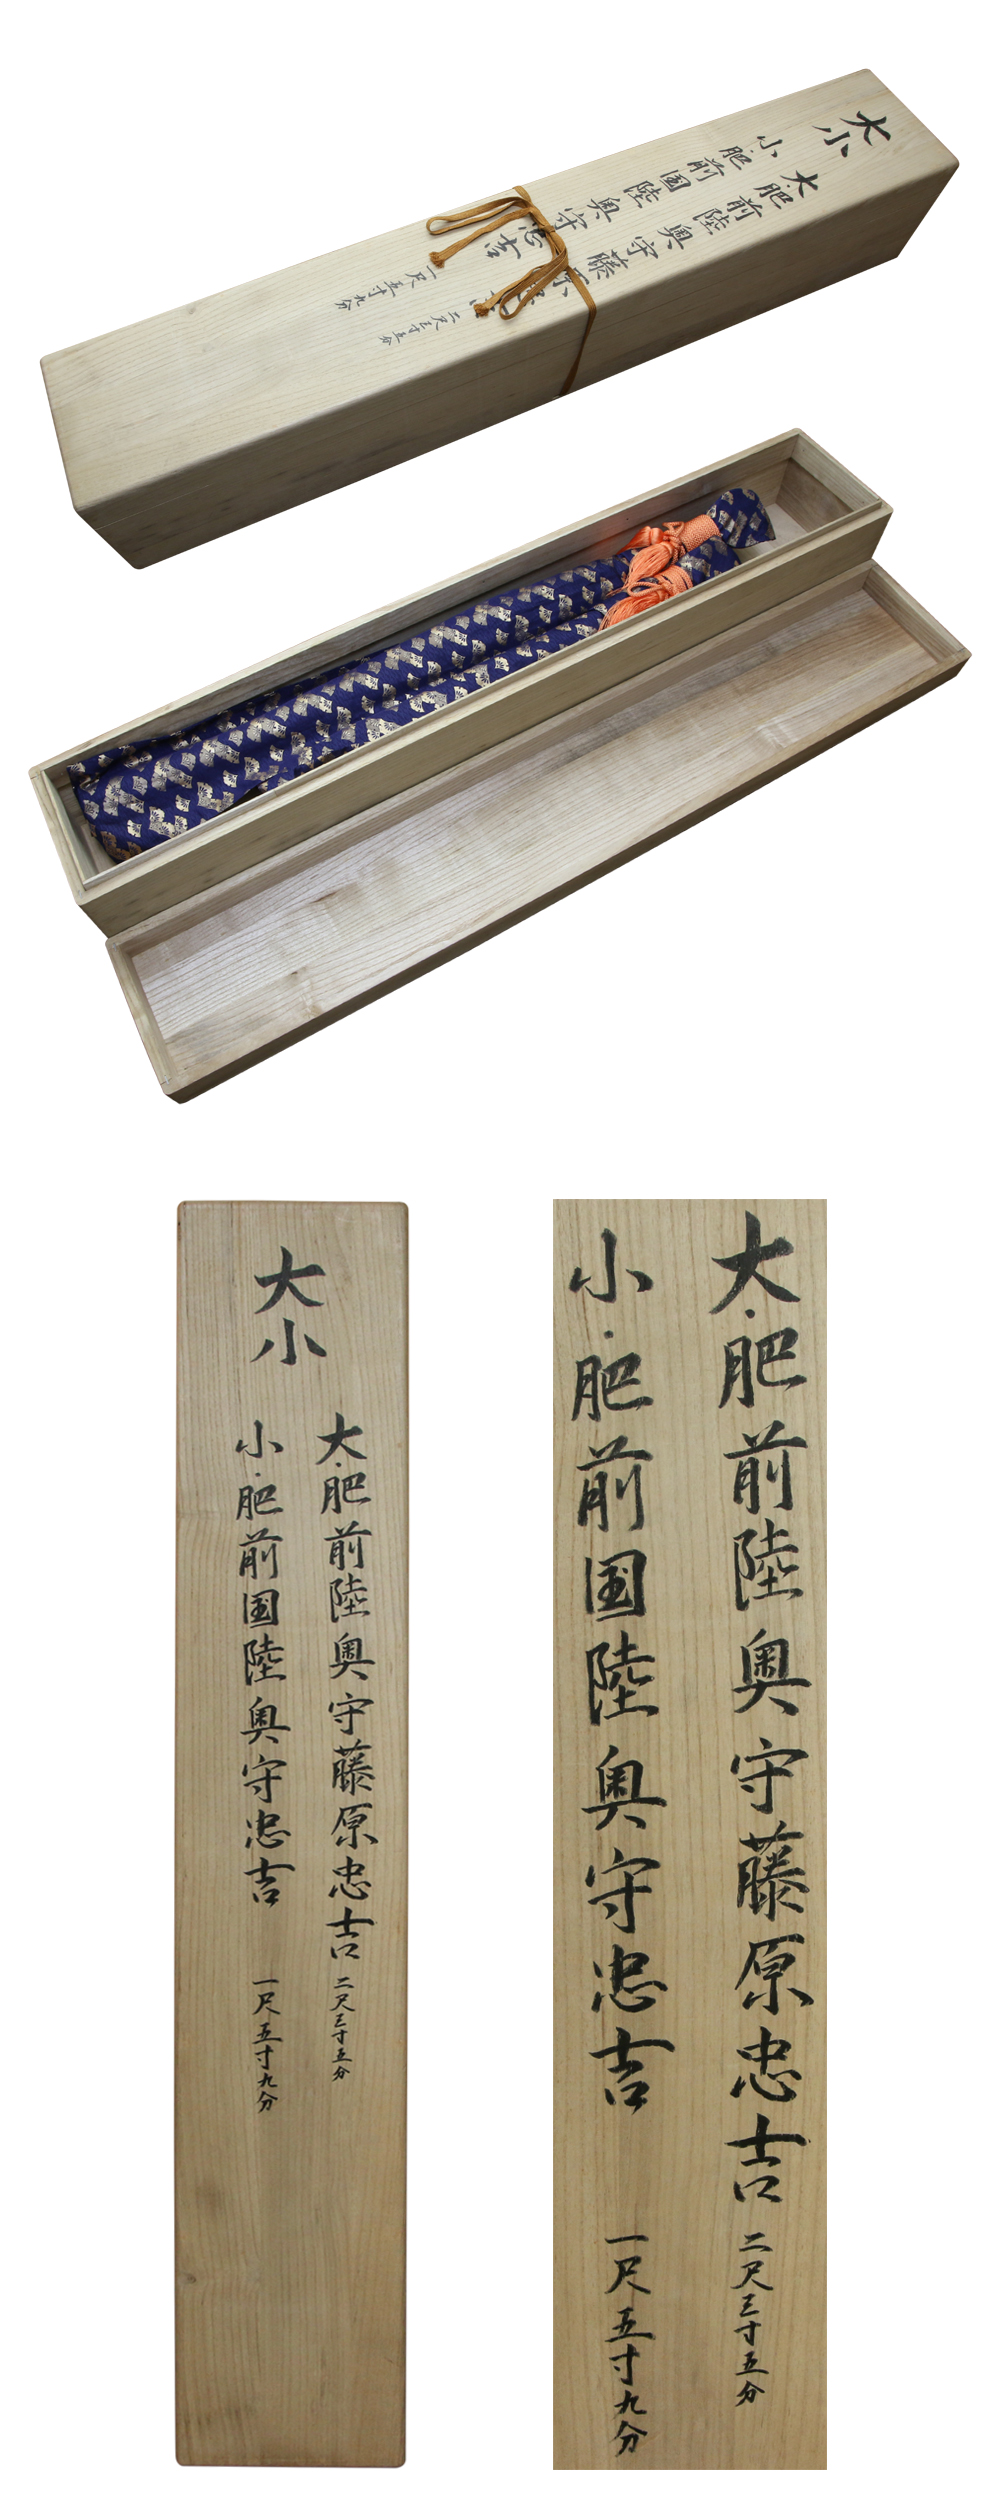 大小
大・肥前陸奥守藤原忠吉 二尺三寸五分
小・肥前国陸奥守忠吉 一尺五寸九分
大小
大・肥前陸奥守藤原忠吉 二尺三寸五分
小・肥前国陸奥守忠吉 一尺五寸九分
大・肥前陸奥守藤原忠吉 二尺三寸五分
小・肥前国陸奥守忠吉 一尺五寸九分